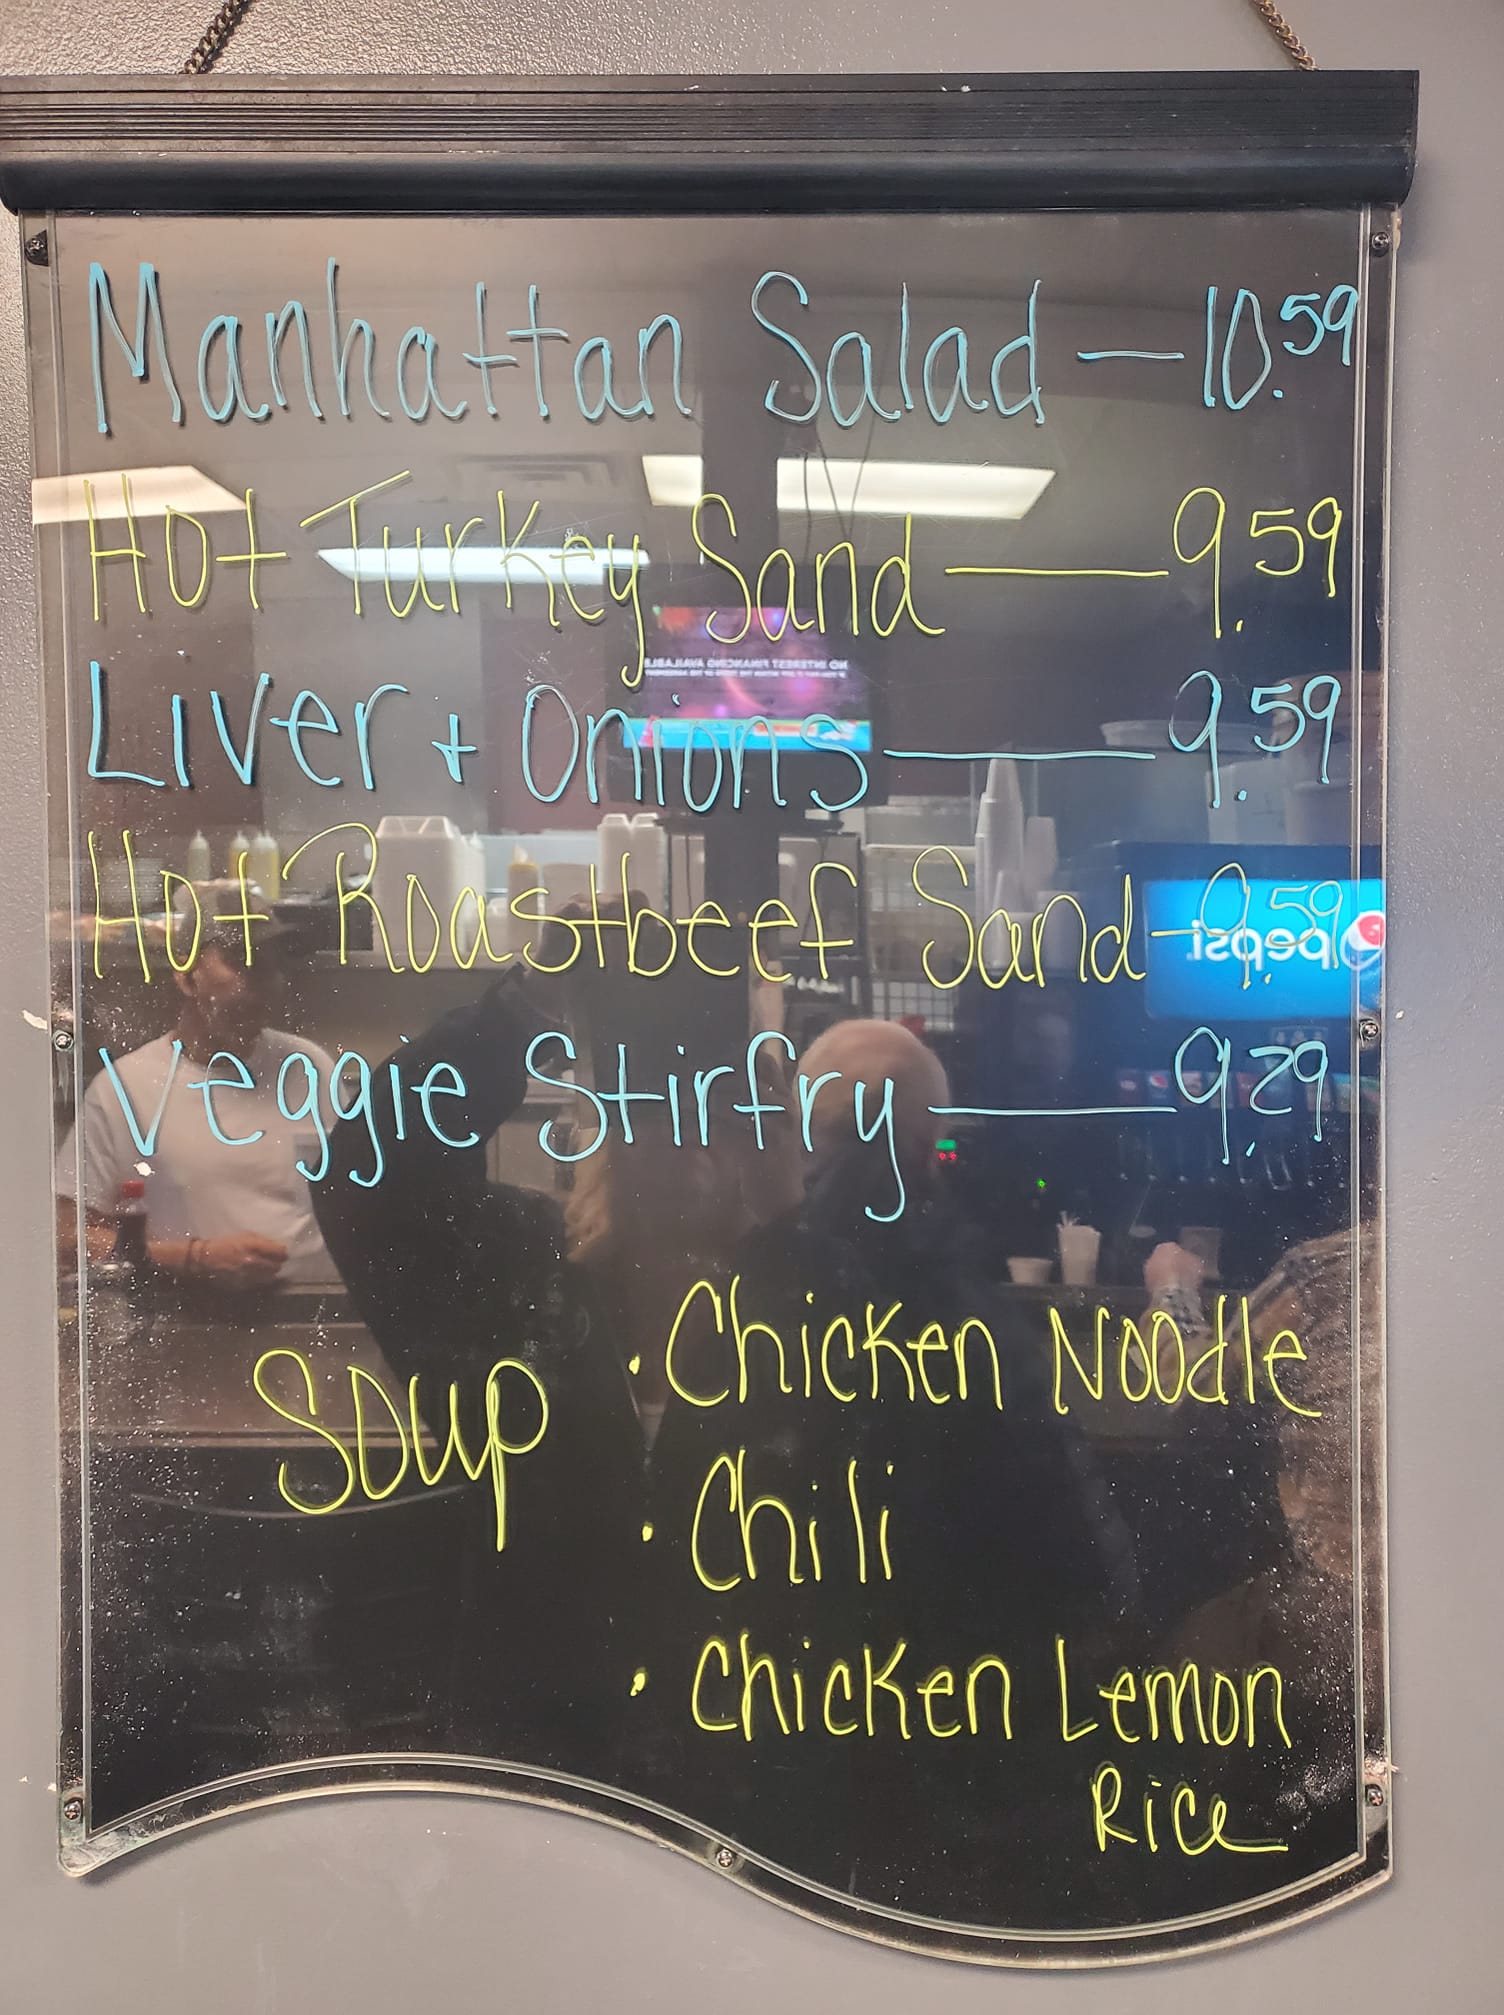 Manhattan Salad — 10.59
Hot Turkey Sand — 9.59
Liver + Onions — 9.59
Hot Roastbeef Sand - 9.59
Veggie Stirfry — 9.29
Soup
· Chicken Noodle
· Chili
· Chicken Lemon
Rice
NO INTEREST FINANCING AVAILABLE
pepsi